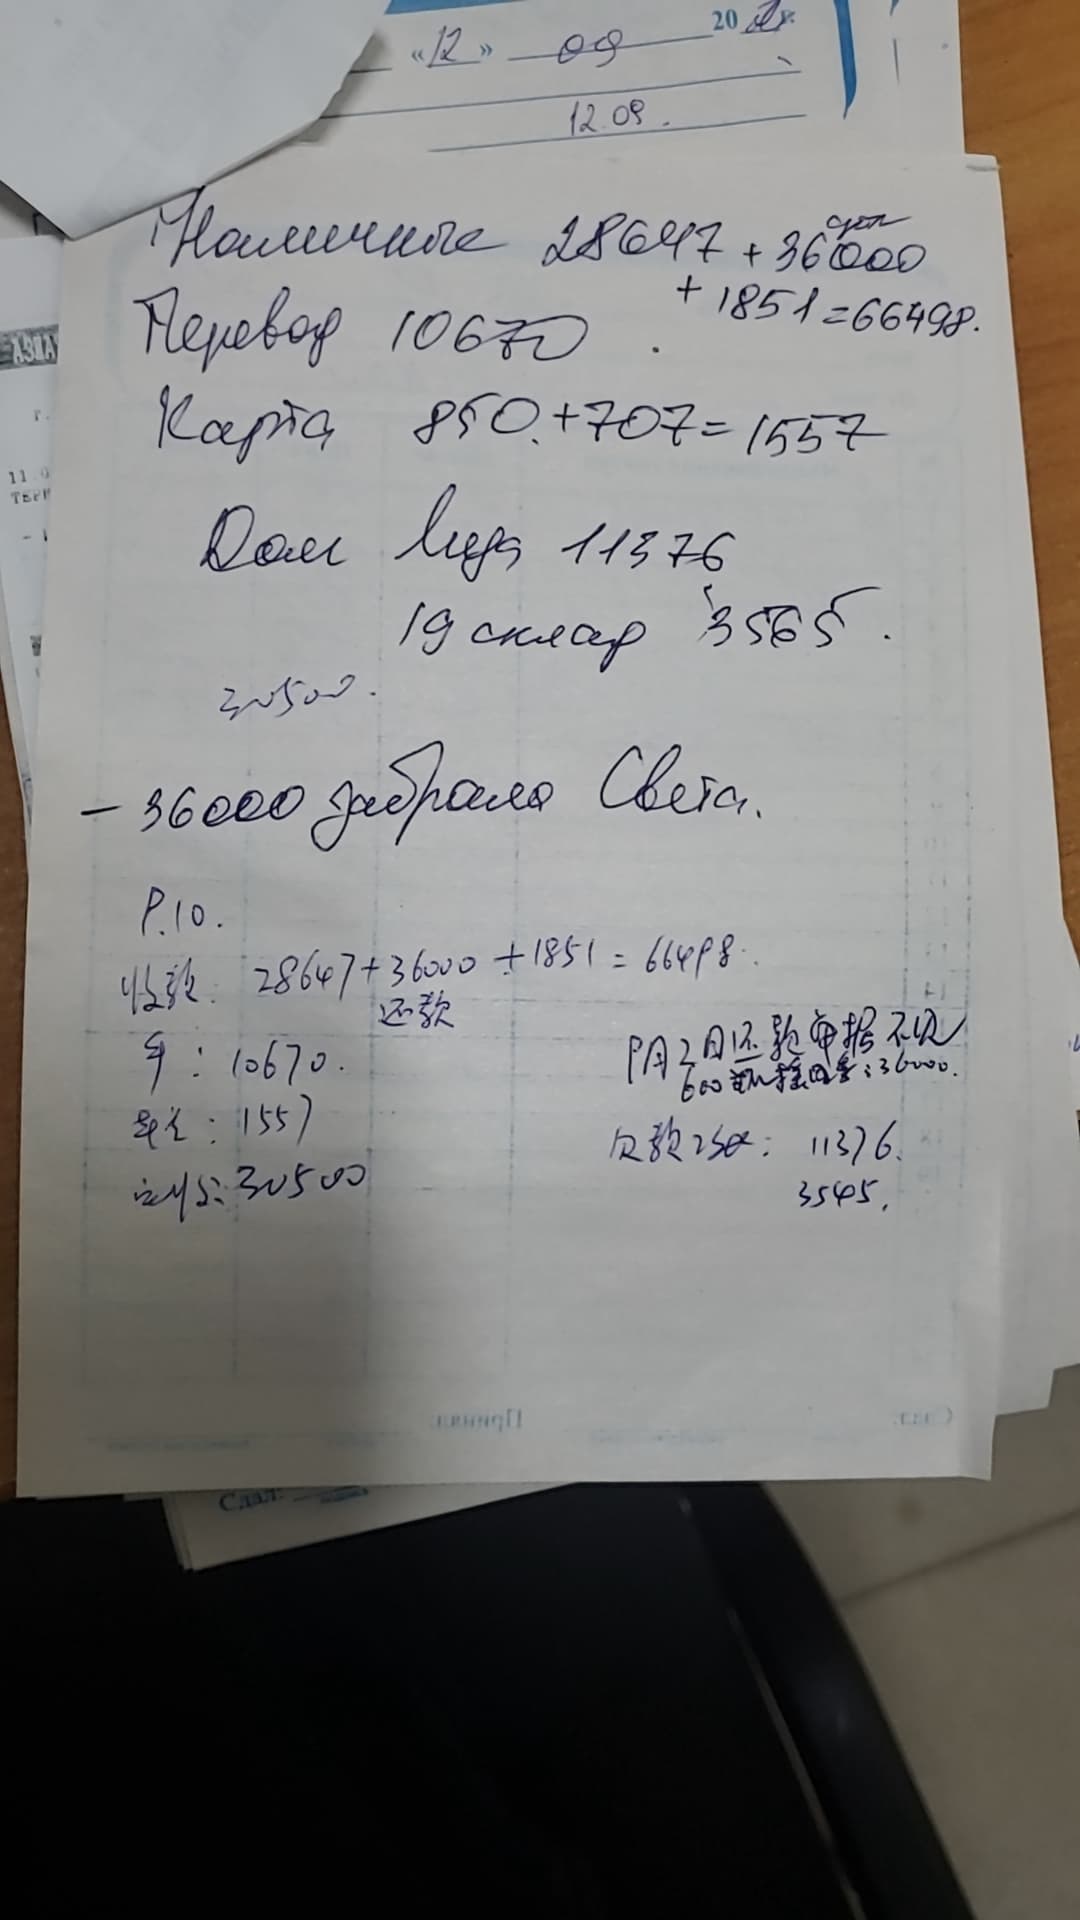 «12» 09 20
12.09.
АЗИА
Наличные 28647 + 36000
+ 1851=66498.
Перевод 10670
Карта 850.+707=1557
Долг Лида 11376
19 склад 3565.
30500.
- 36000 забрала Света.
P.10.
收款: 28647+36000 +1851=66498.
还款
卡: 10670.
1557
30500
36000.
欠款 : 11376.
3545.
Принял:
Сдал:
Сдал: